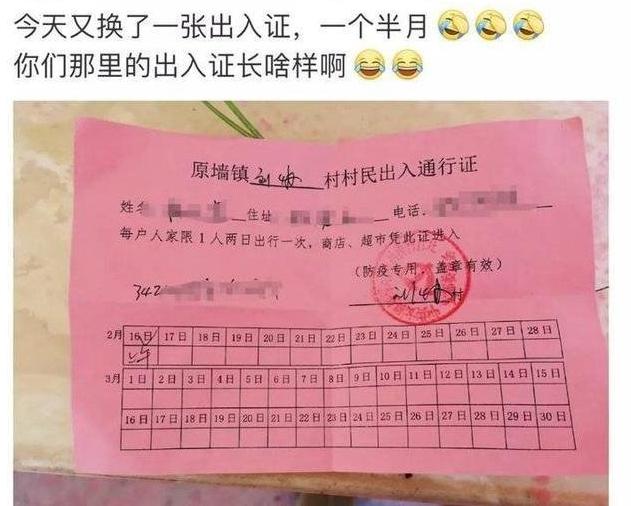 今天又换了一张出入证，一个半月🤣🤣🤣
你们那里的出入证长啥样啊😂😂
原墙镇 村村民出入通行证
姓名 住址 电话
每户人家限1人两日出行一次，商店、超市凭此证进入
（防疫专用，盖章有效）
342
村
2月 16日 17日 18日 19日 20日 21日 22日 23日 24日 25日 26日 27日 28日
3月 1日 2日 3日 4日 5日 6日 7日 8日 9日 10日 11日 12日 13日 14日 15日
16日 17日 18日 19日 20日 21日 22日 23日 24日 25日 26日 27日 28日 29日 30日